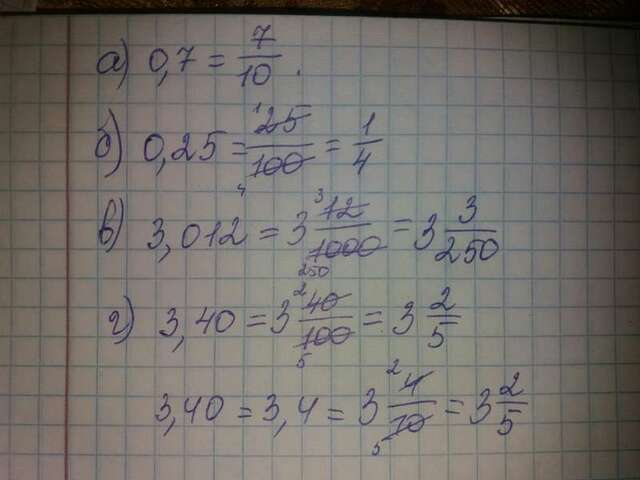 а) 0,7 = 7/10.
б) 0,25 = 25/100 = 1/4
в) 3,012 = 3 12/1000 = 3 3/250
г) 3,40 = 3 40/100 = 3 2/5
3,40 = 3,4 = 3 4/10 = 3 2/5